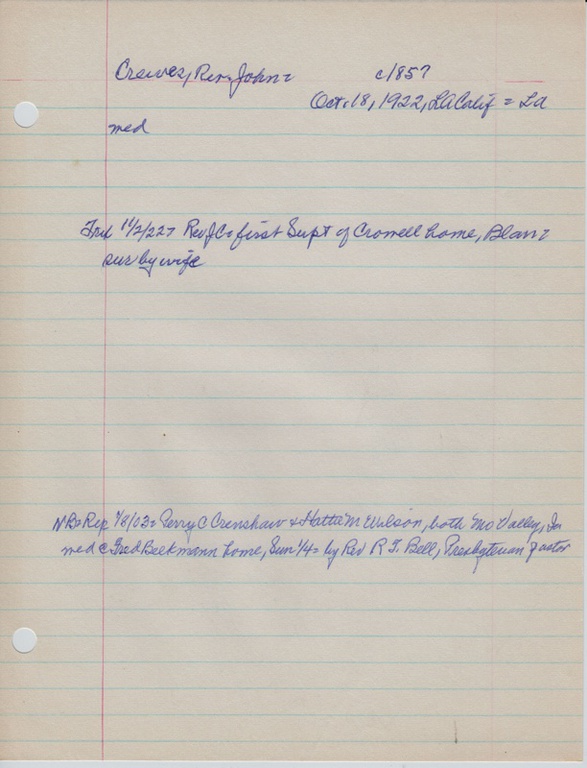 Crewes, Rev. John = c1857
Oct. 18, 1922, LA Calif = LA
med
Trib 11/2/22 = Rev JC = first Supt of Crowell home, Blair =
sur by wife
NB = Rep 1/8/03 = Perry C Crenshaw & Hattie M Wilson, both Mo Valley, Ia
med @ Fred Beekmann home, Sun 1/4 = by Rev R T. Bell, Presbyterian pastor